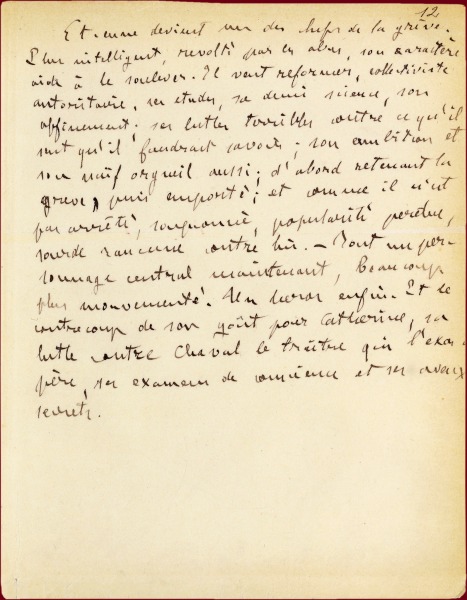 12
Etienne devient un des chefs de la grève.
Plus intelligent, revolté par les abus, son caractère
aide à le soulever. Il veut reformer, collectiviste
autoritaire, ses etudes, sa demi science, son
affinement; ses luttes terribles contre ce qu'il
sent qu'il faudrait savoir; son ambition et
son naïf orgueil aussi; d'abord retenant la
greve, puis emporté; et comme il n'est
pas arrêté, soupçonné, popularité perdue,
sourde rancune contre lui. — Tout un per-
sonnage central maintenant, beaucoup
plus mouvementé. Un heros enfin. Et le
contrecoup de son goût pour Catherine, sa
lutte contre Chaval le traître qui l'exas
père, ses examens de conscience et ses aveux
secrets.